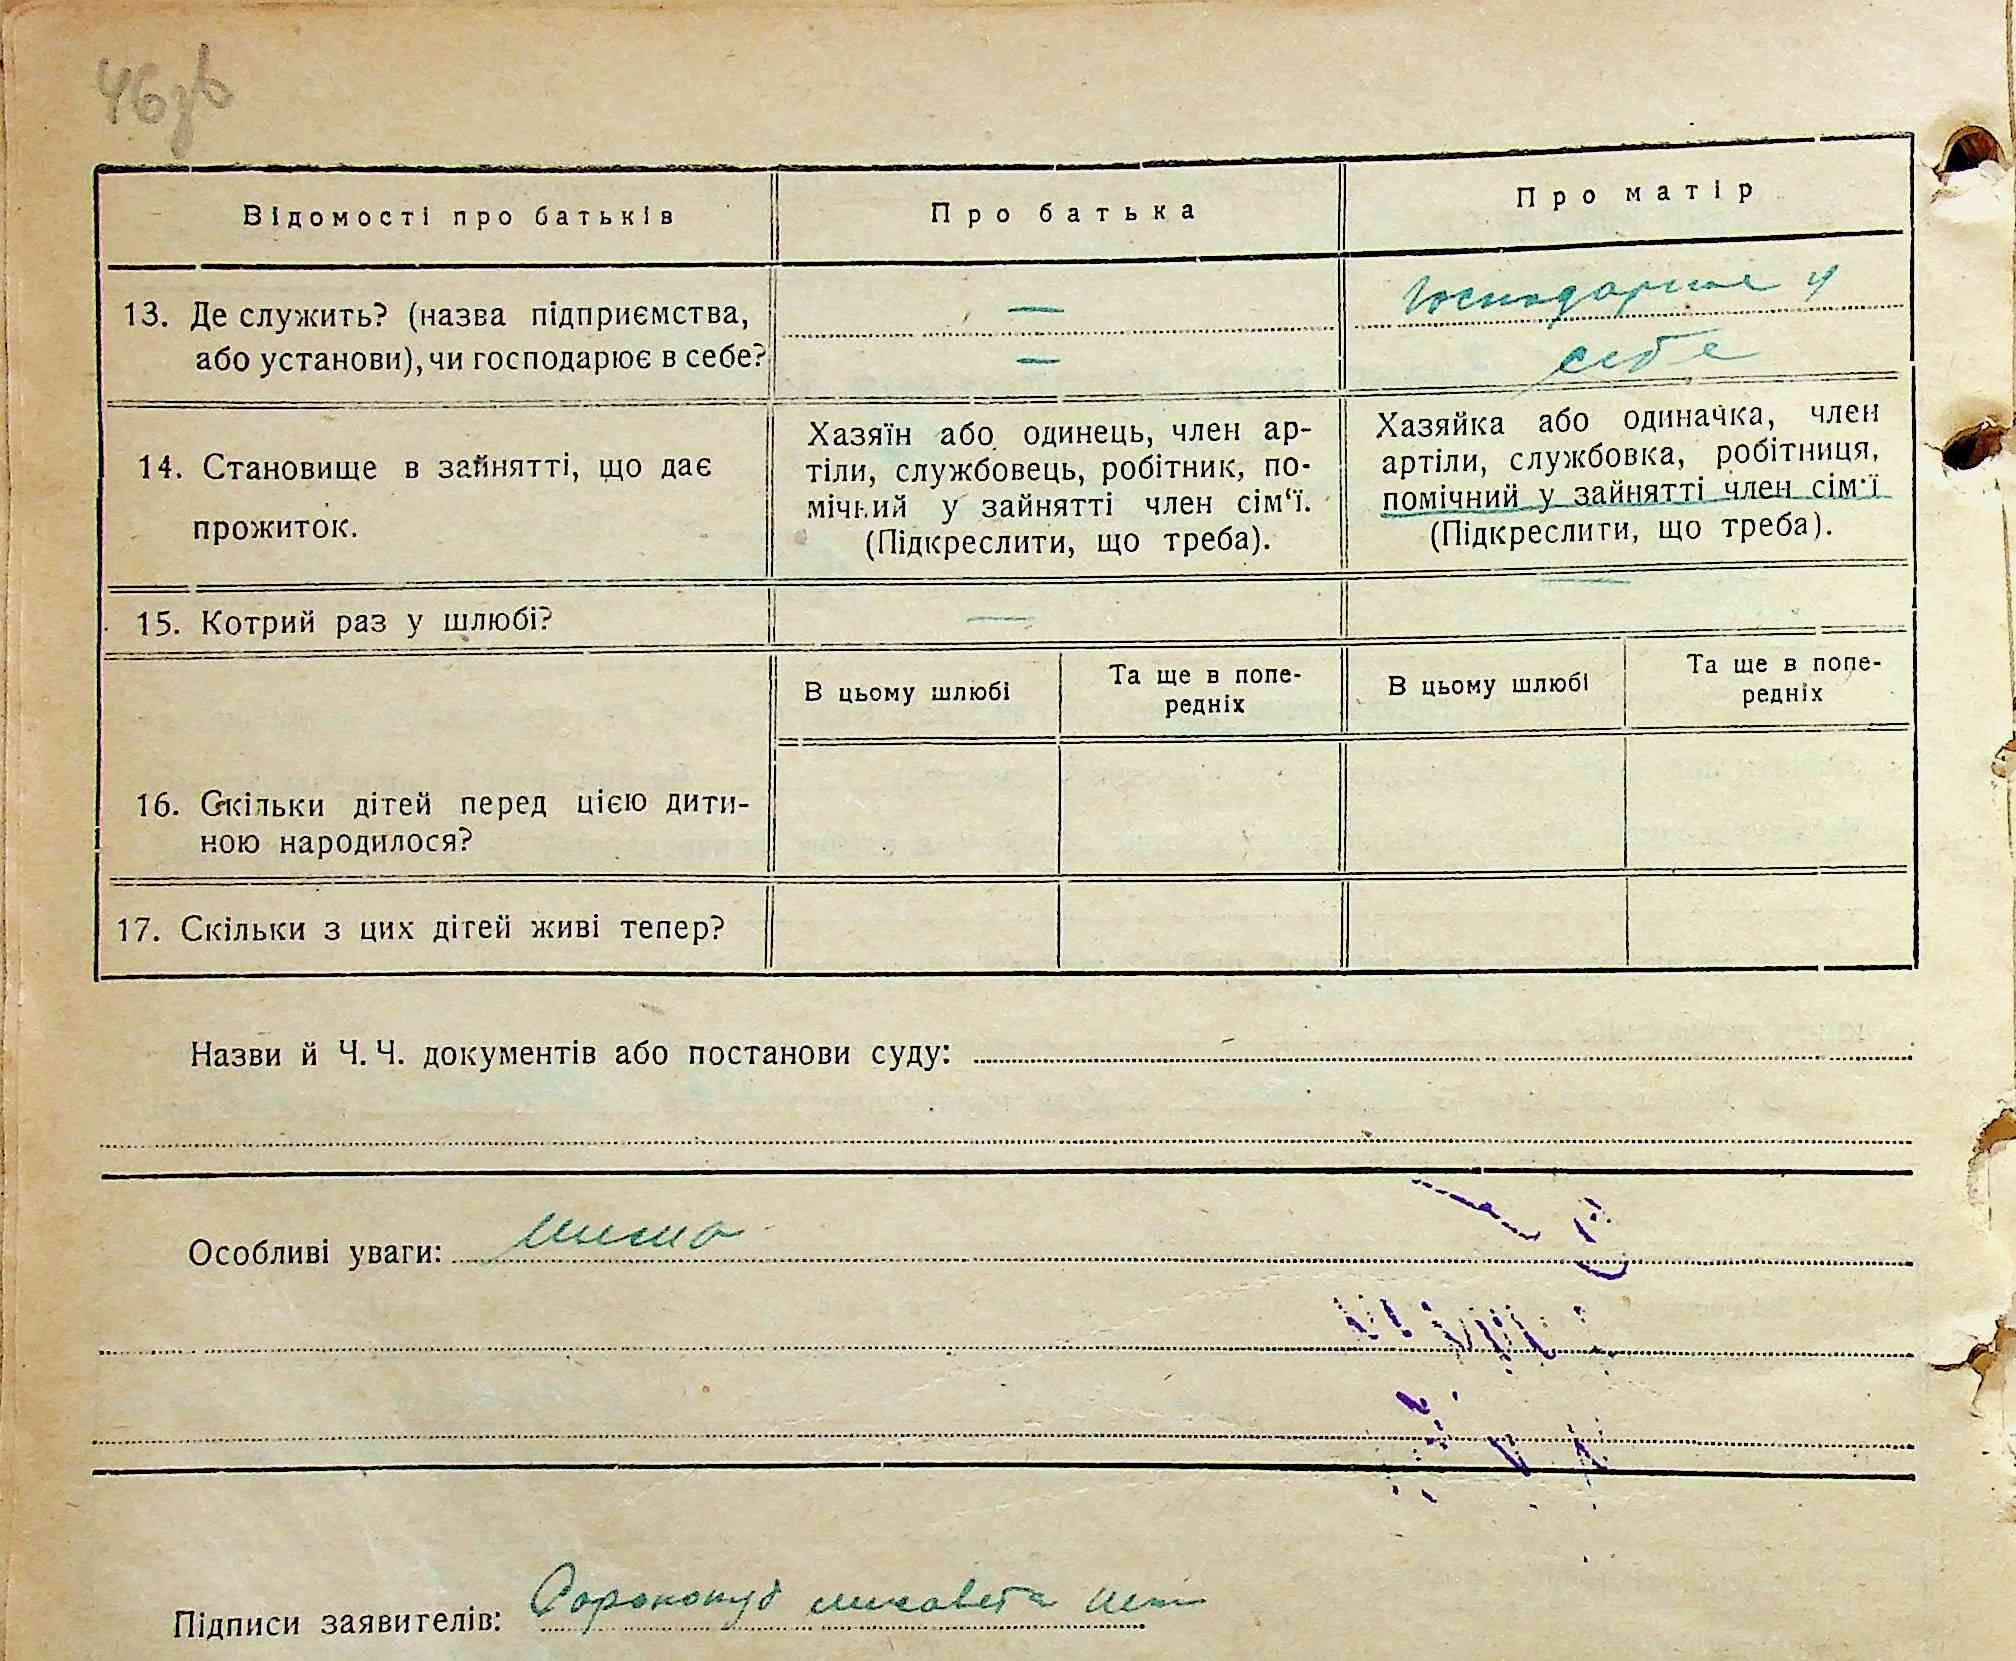 46зв
Відомості про батьків
Про батька
Про матір
13. Де служить? (назва підприємства,
або установи), чи господарює в себе?
—
—
господарює у
себе
14. Становище в зайнятті, що дає
прожиток.
Хазяїн або одинець, член ар-
тіли, службовець, робітник, по-
мічний у зайнятті член сім‘ї.
(Підкреслити, що треба).
Хазяйка або одиначка, член
артіли, службовка, робітниця,
помічний у зайнятті член сім‘ї
(Підкреслити, що треба).
15. Котрий раз у шлюбі?
—
—
В цьому шлюбі
Та ще в попе-
редніх
В цьому шлюбі
Та ще в попе-
редніх
16. Скільки дітей перед цією дити-
ною народилося?
17. Скільки з цих дітей живі тепер?
Назви й Ч. Ч. документів або постанови суду:
Особливі уваги:
Підписи заявителів: лисавета